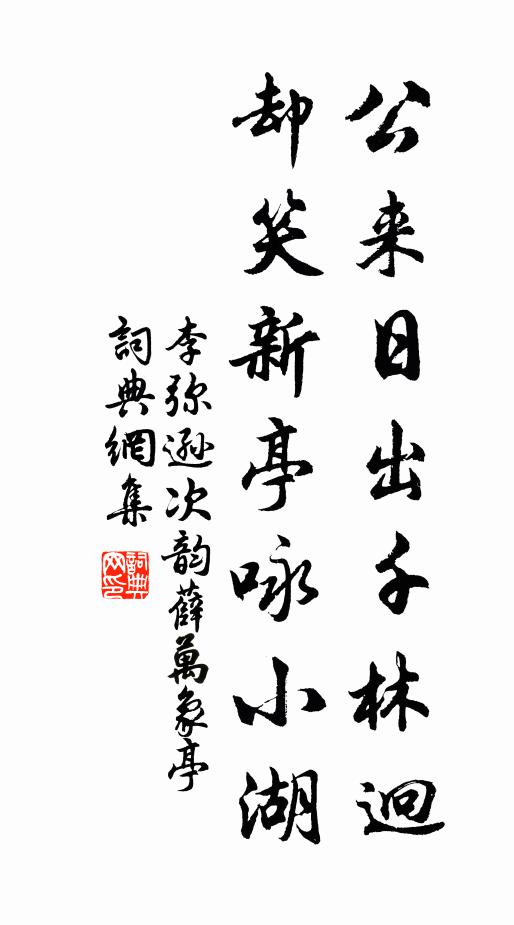 公来日出千林迥
却笑新亭咏小湖
李弥遜次韵薛萬象亭
詞典網集
詞典網印